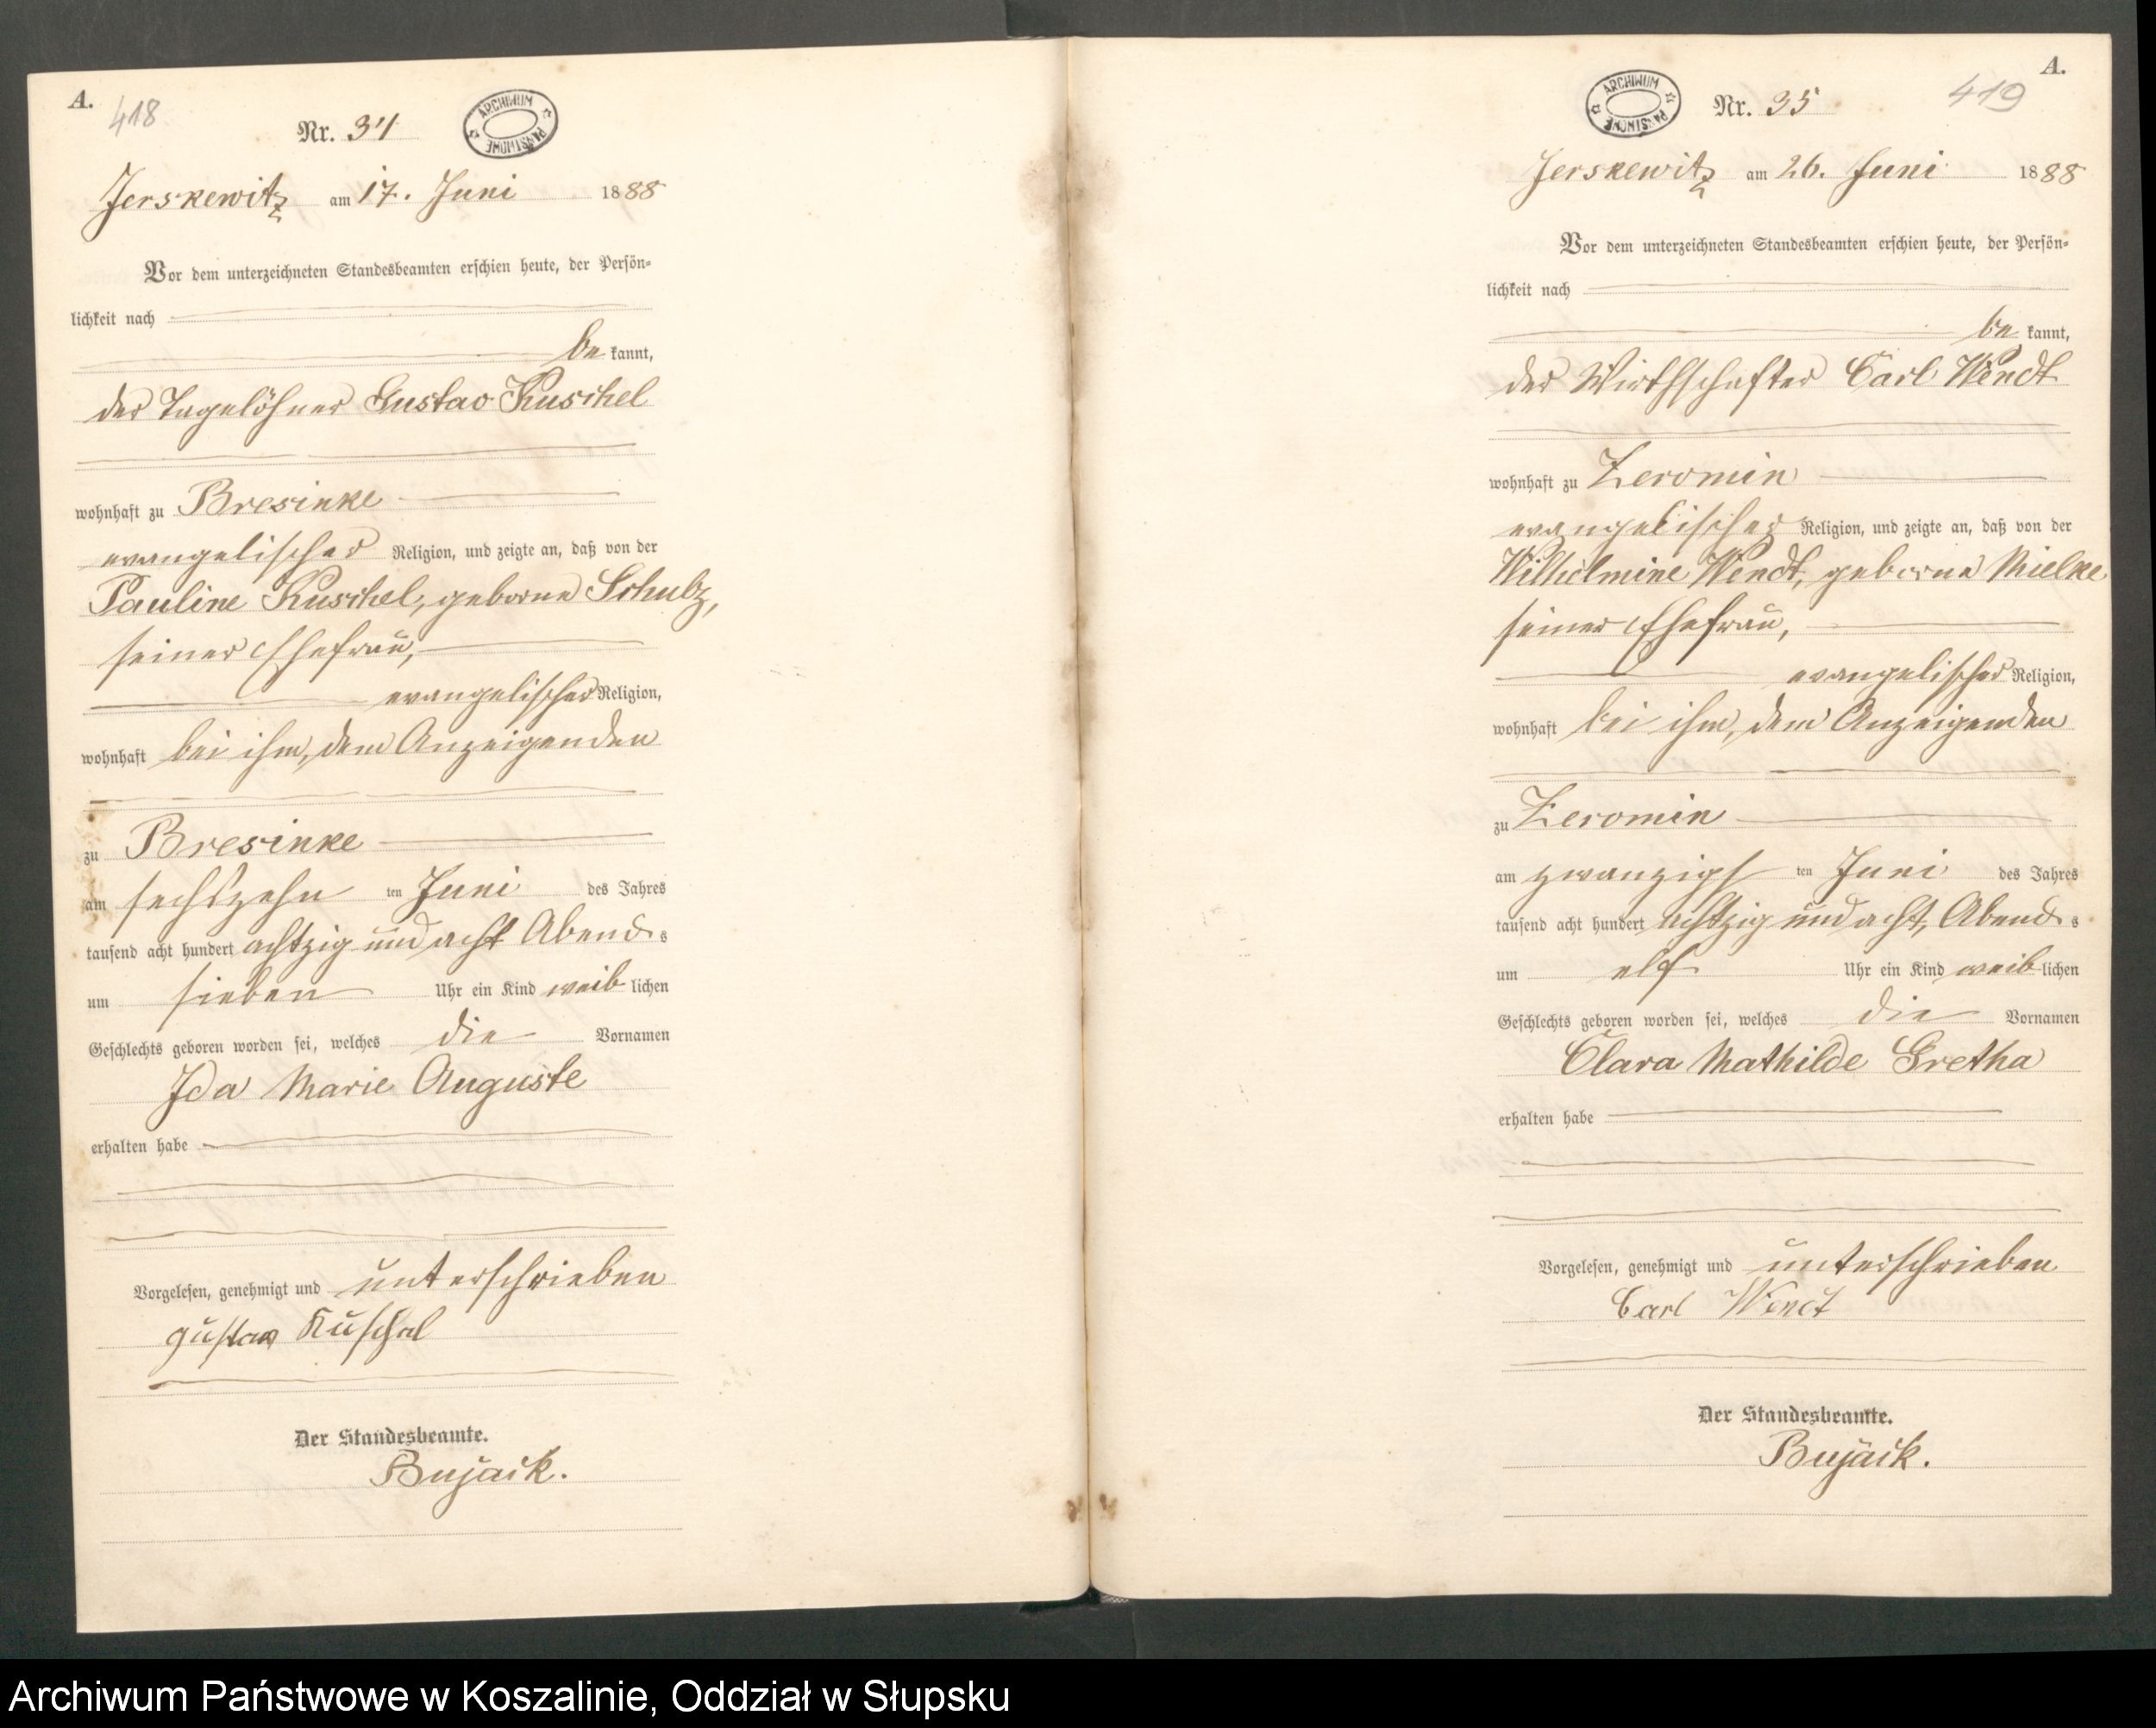 A.
418
Nr. 34
ARCHIWUM PAŃSTWOWE
Jerskewitz am 17. Juni 1888
Vor dem unterzeichneten Standesbeamten erschien heute, der Persön-
lichkeit nach
be kannt,
der Tagelöhner Gustav Kuschel
wohnhaft zu Bresinke
evangelischer Religion, und zeigte an, daß von der
Pauline Kuschel, geborne Schulz,
seiner Ehefrau,
evangelischer Religion,
wohnhaft bei ihm, dem Anzeigenden
zu Bresinke
am sechszehn ten Juni des Jahres
tausend acht hundert achtzig und acht Abend s
um sieben Uhr ein Kind weib lichen
Geschlechts geboren worden sei, welches die Vornamen
Ida Marie Auguste
erhalten habe
Vorgelesen, genehmigt und unterschrieben
Gustav Kuschel
Der Standesbeamte.
Bujack.
A.
419
ARCHIWUM PAŃSTWOWE
Nr. 35
Jerskewitz am 26. Juni 1888
Vor dem unterzeichneten Standesbeamten erschien heute, der Persön-
lichkeit nach
be kannt,
der Wirthschafter Carl Wendt
wohnhaft zu Zeromin
evangelischer Religion, und zeigte an, daß von der
Wilhelmine Wendt, geborne Mielke
seiner Ehefrau,
evangelischer Religion,
wohnhaft bei ihm, dem Anzeigenden
zu Zeromin
am zwanzigs ten Juni des Jahres
tausend acht hundert achtzig und acht, Abend s
um elf Uhr ein Kind weib lichen
Geschlechts geboren worden sei, welches die Vornamen
Clara Mathilde Gretha
erhalten habe
Vorgelesen, genehmigt und unterschrieben
Carl Wendt
Der Standesbeamte.
Bujack.
Archiwum Państwowe w Koszalinie, Oddział w Słupsku